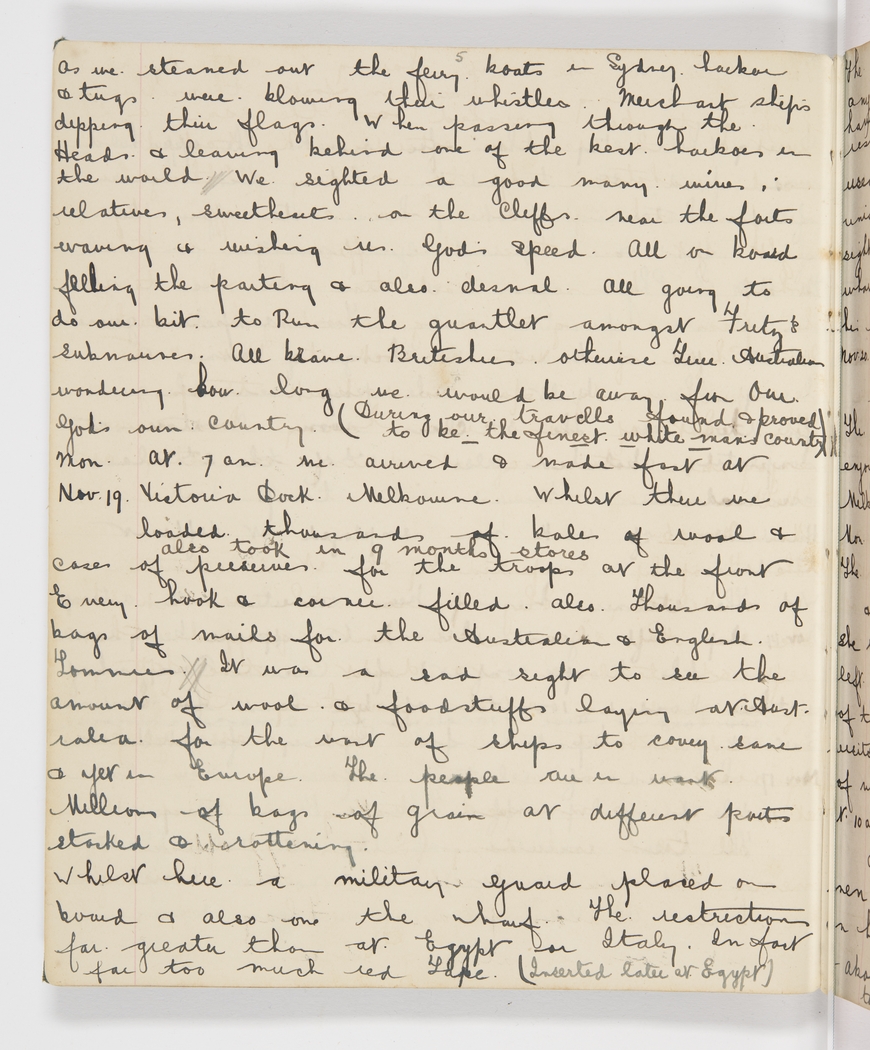 5
as we steamed out the ferry boats in Sydney harbor
& tugs were blowing their whistles. Merchant ships
dipping their flags. When passing through the
Heads & leaving behind one of the best harbors in
the world // We sighted a good many wives,
relatives, sweethearts on the Cliffs near the forts
waving & wishing us God's speed. All on board
felling the parting & also dismal. All going to
do our bit. to Run the guantlet amongst Fritz's
submarines. All brave Britishers otherwise True Australians
wondering how long we would be away from Our
God's own country. (During our travells found & proved)
to be the finest white man's country))
Mon. At 7 am. we arrived & made fast at
Nov. 19. Victoria Dock. Melbourne. Whilst there we
loaded thousands of bales of wool &
also took in 9 months stores
cases of preserves for the troops at the front
Every hook & corner filled. also Thousands of
bags of mails for the Australian & English
Tommies. // It was a sad sight to see the
amount of wool & foodstuffs laying at Aust-
ralia for the want of ships to covey same
& yet in Europe. The people are in want
Millions of bags of grain at different ports
stacked & rottening.
Whilst here a military guard placed on
board & also on the wharf. The restrictions
far greater than at Egypt or Italy. In fact
far too much red Tape. (Inserted later at Egypt)